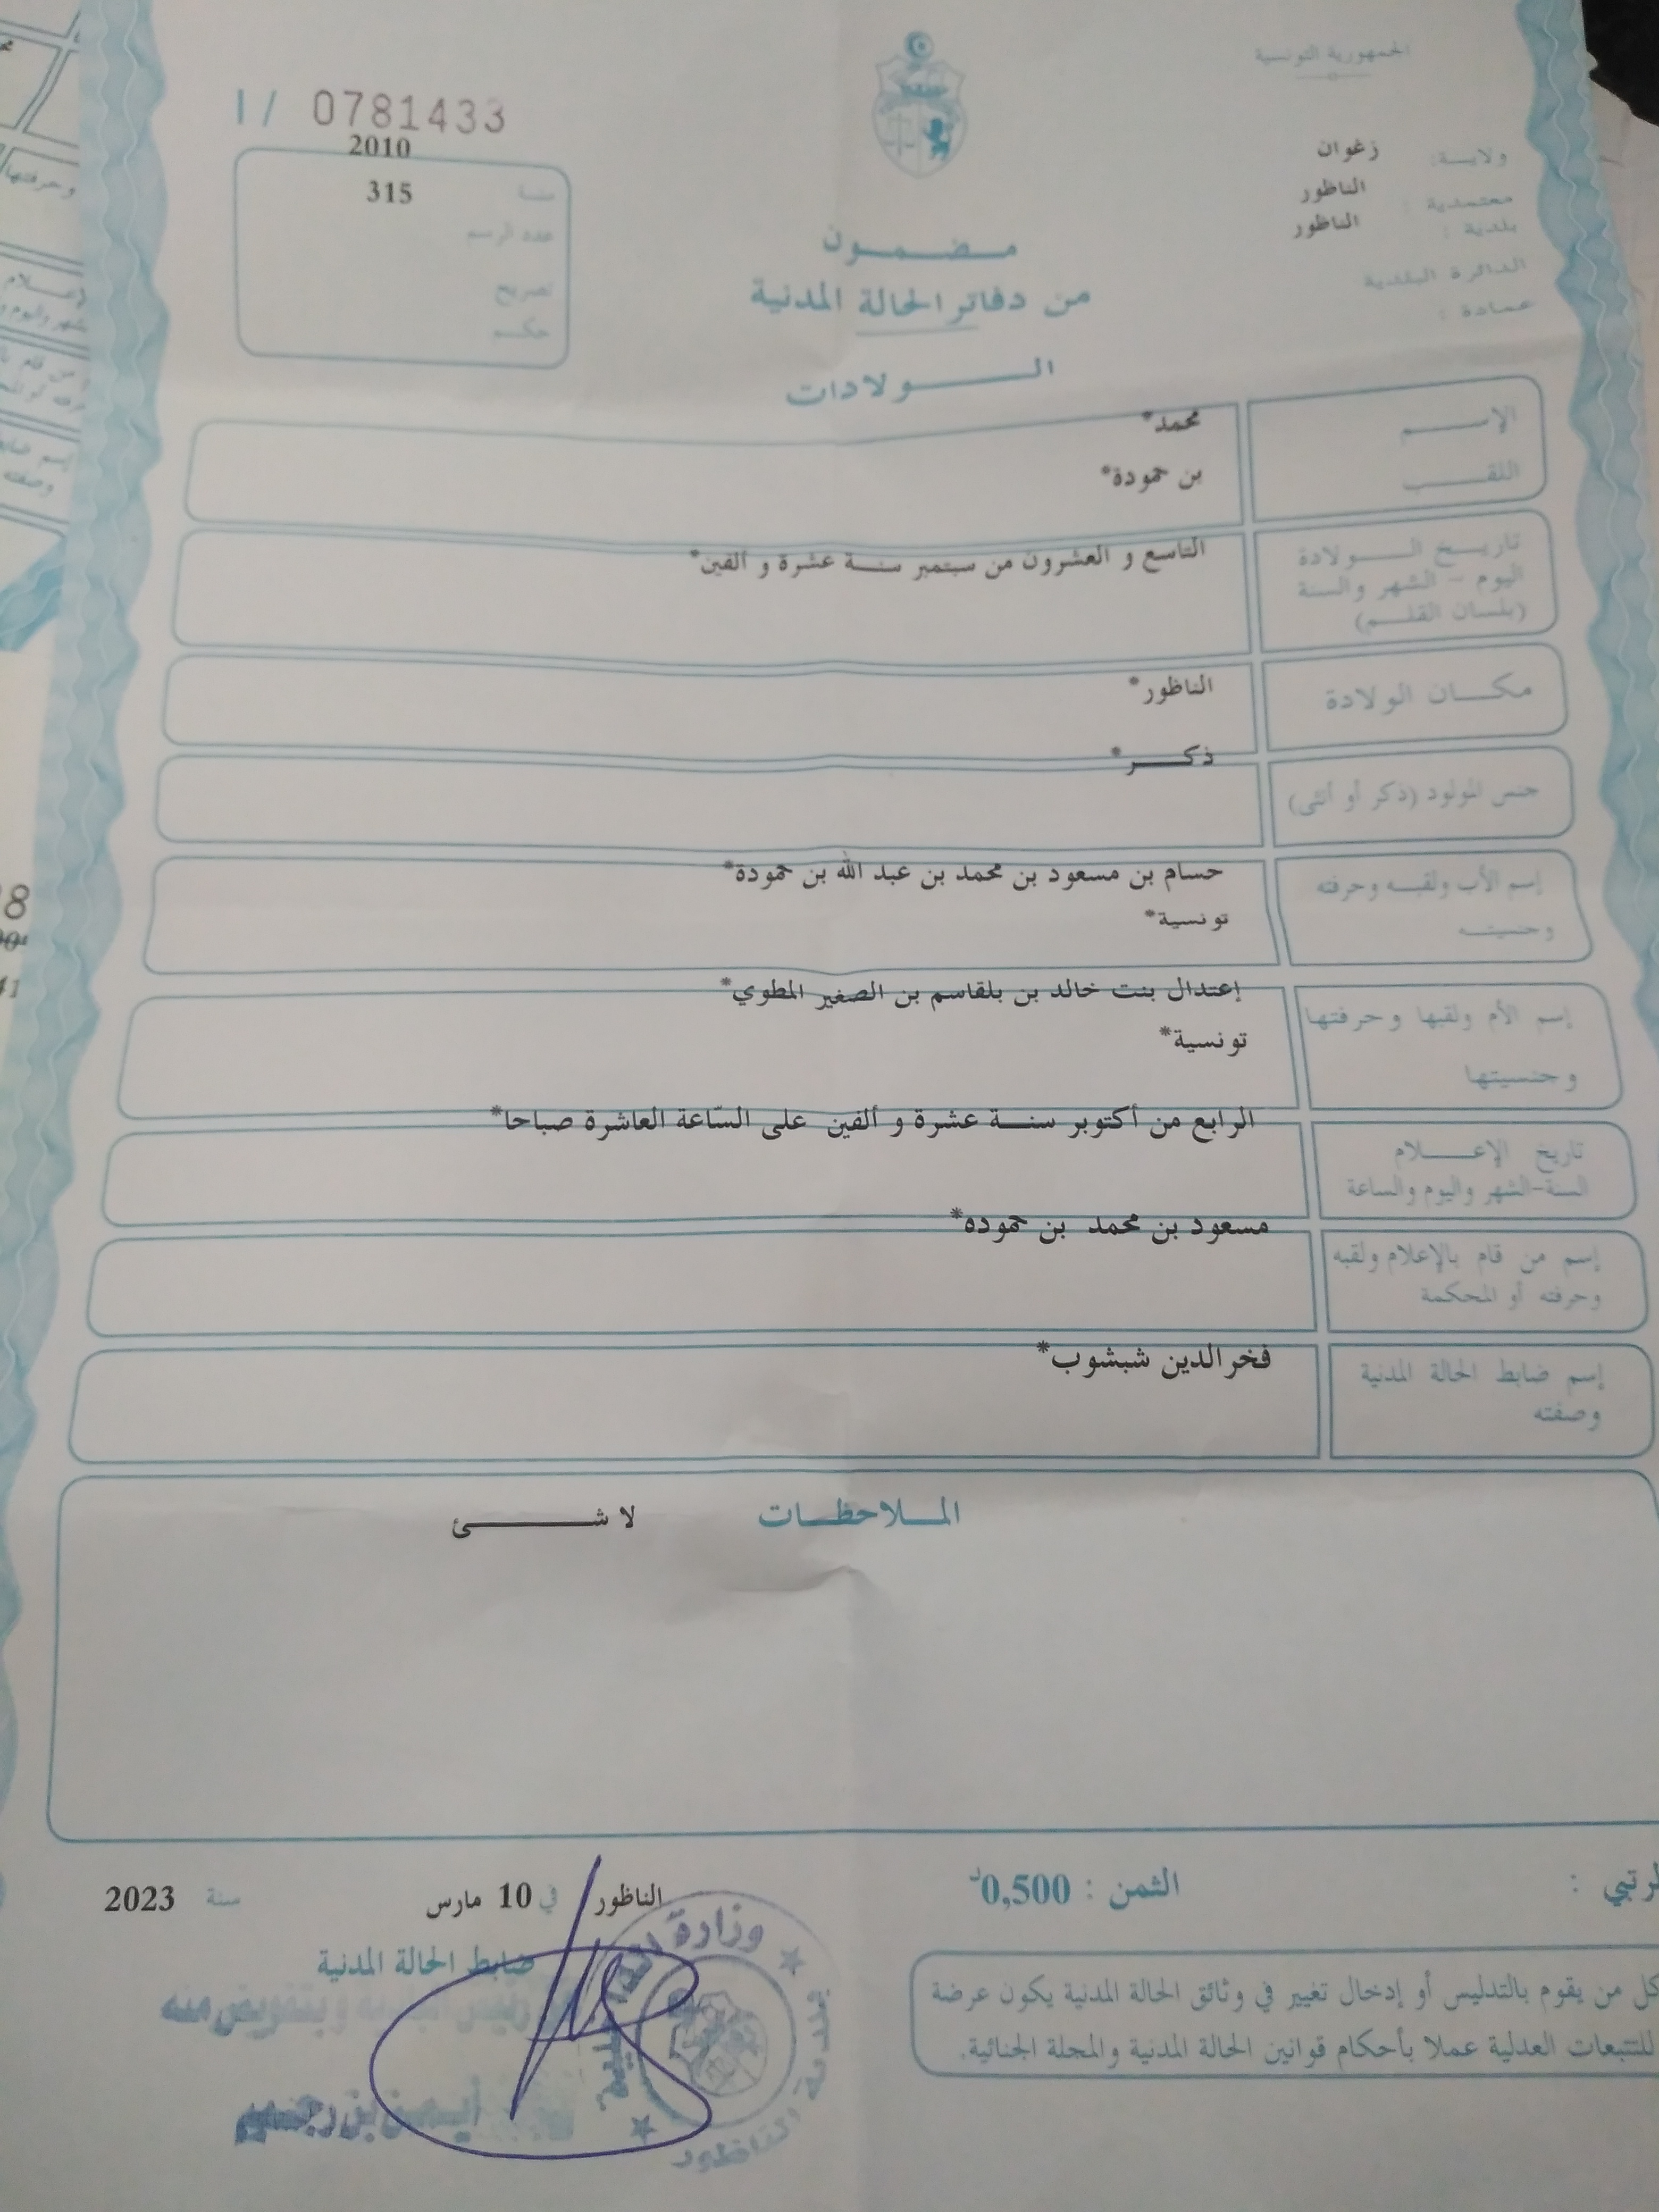 الجمهورية التونسية
I / 0781433
2010
سنة 315
عدد الرسم
تصريح
حكم
ولاية: زغوان
معتمدية : الناظور
بلدية : الناظور
الدائرة البلدية
عمادة :
مضمون
من دفاتر الحالة المدنية
الولادات
الإسم محمد*
اللقب بن حمودة*
تاريخ الولادة التاسع و العشرون من سبتمبر سنة عشرة و ألفين*
اليوم - الشهر والسنة
(بلسان القلم)
مكان الولادة الناظور*
ذكر*
جنس المولود (ذكر أو أنثى)
إسم الأب ولقبه وحرفته حسام بن مسعود بن محمد بن عبد الله بن حمودة*
وجنسيته تونسية*
إعتدال بنت خالد بن بلقاسم بن الصغير المطوي*
إسم الأم ولقبها وحرفتها
وجنسيتها تونسية*
الرابع من أكتوبر سنة عشرة و ألفين على السّاعة العاشرة صباحا*
تاريخ الإعلام
السنة-الشهر واليوم والساعة
مسعود بن محمد بن حموده*
إسم من قام بالإعلام ولقبه
وحرفته أو المحكمة
إسم ضابط الحالة المدنية فخرالدين شبشوب*
وصفته
الملاحظات لا شئ
الثمن : 0,500د
الناظور في 10 مارس سنة 2023
ضابط الحالة المدنية
رئيس البلدية وبتفويض منه
أيمن بن رجب
وزارة
بلدية الناظور
كل من يقوم بالتدليس أو إدخال تغيير في وثائق الحالة المدنية يكون عرضة
للتتبعات العدلية عملا بأحكام قوانين الحالة المدنية والمجلة الجنائية.